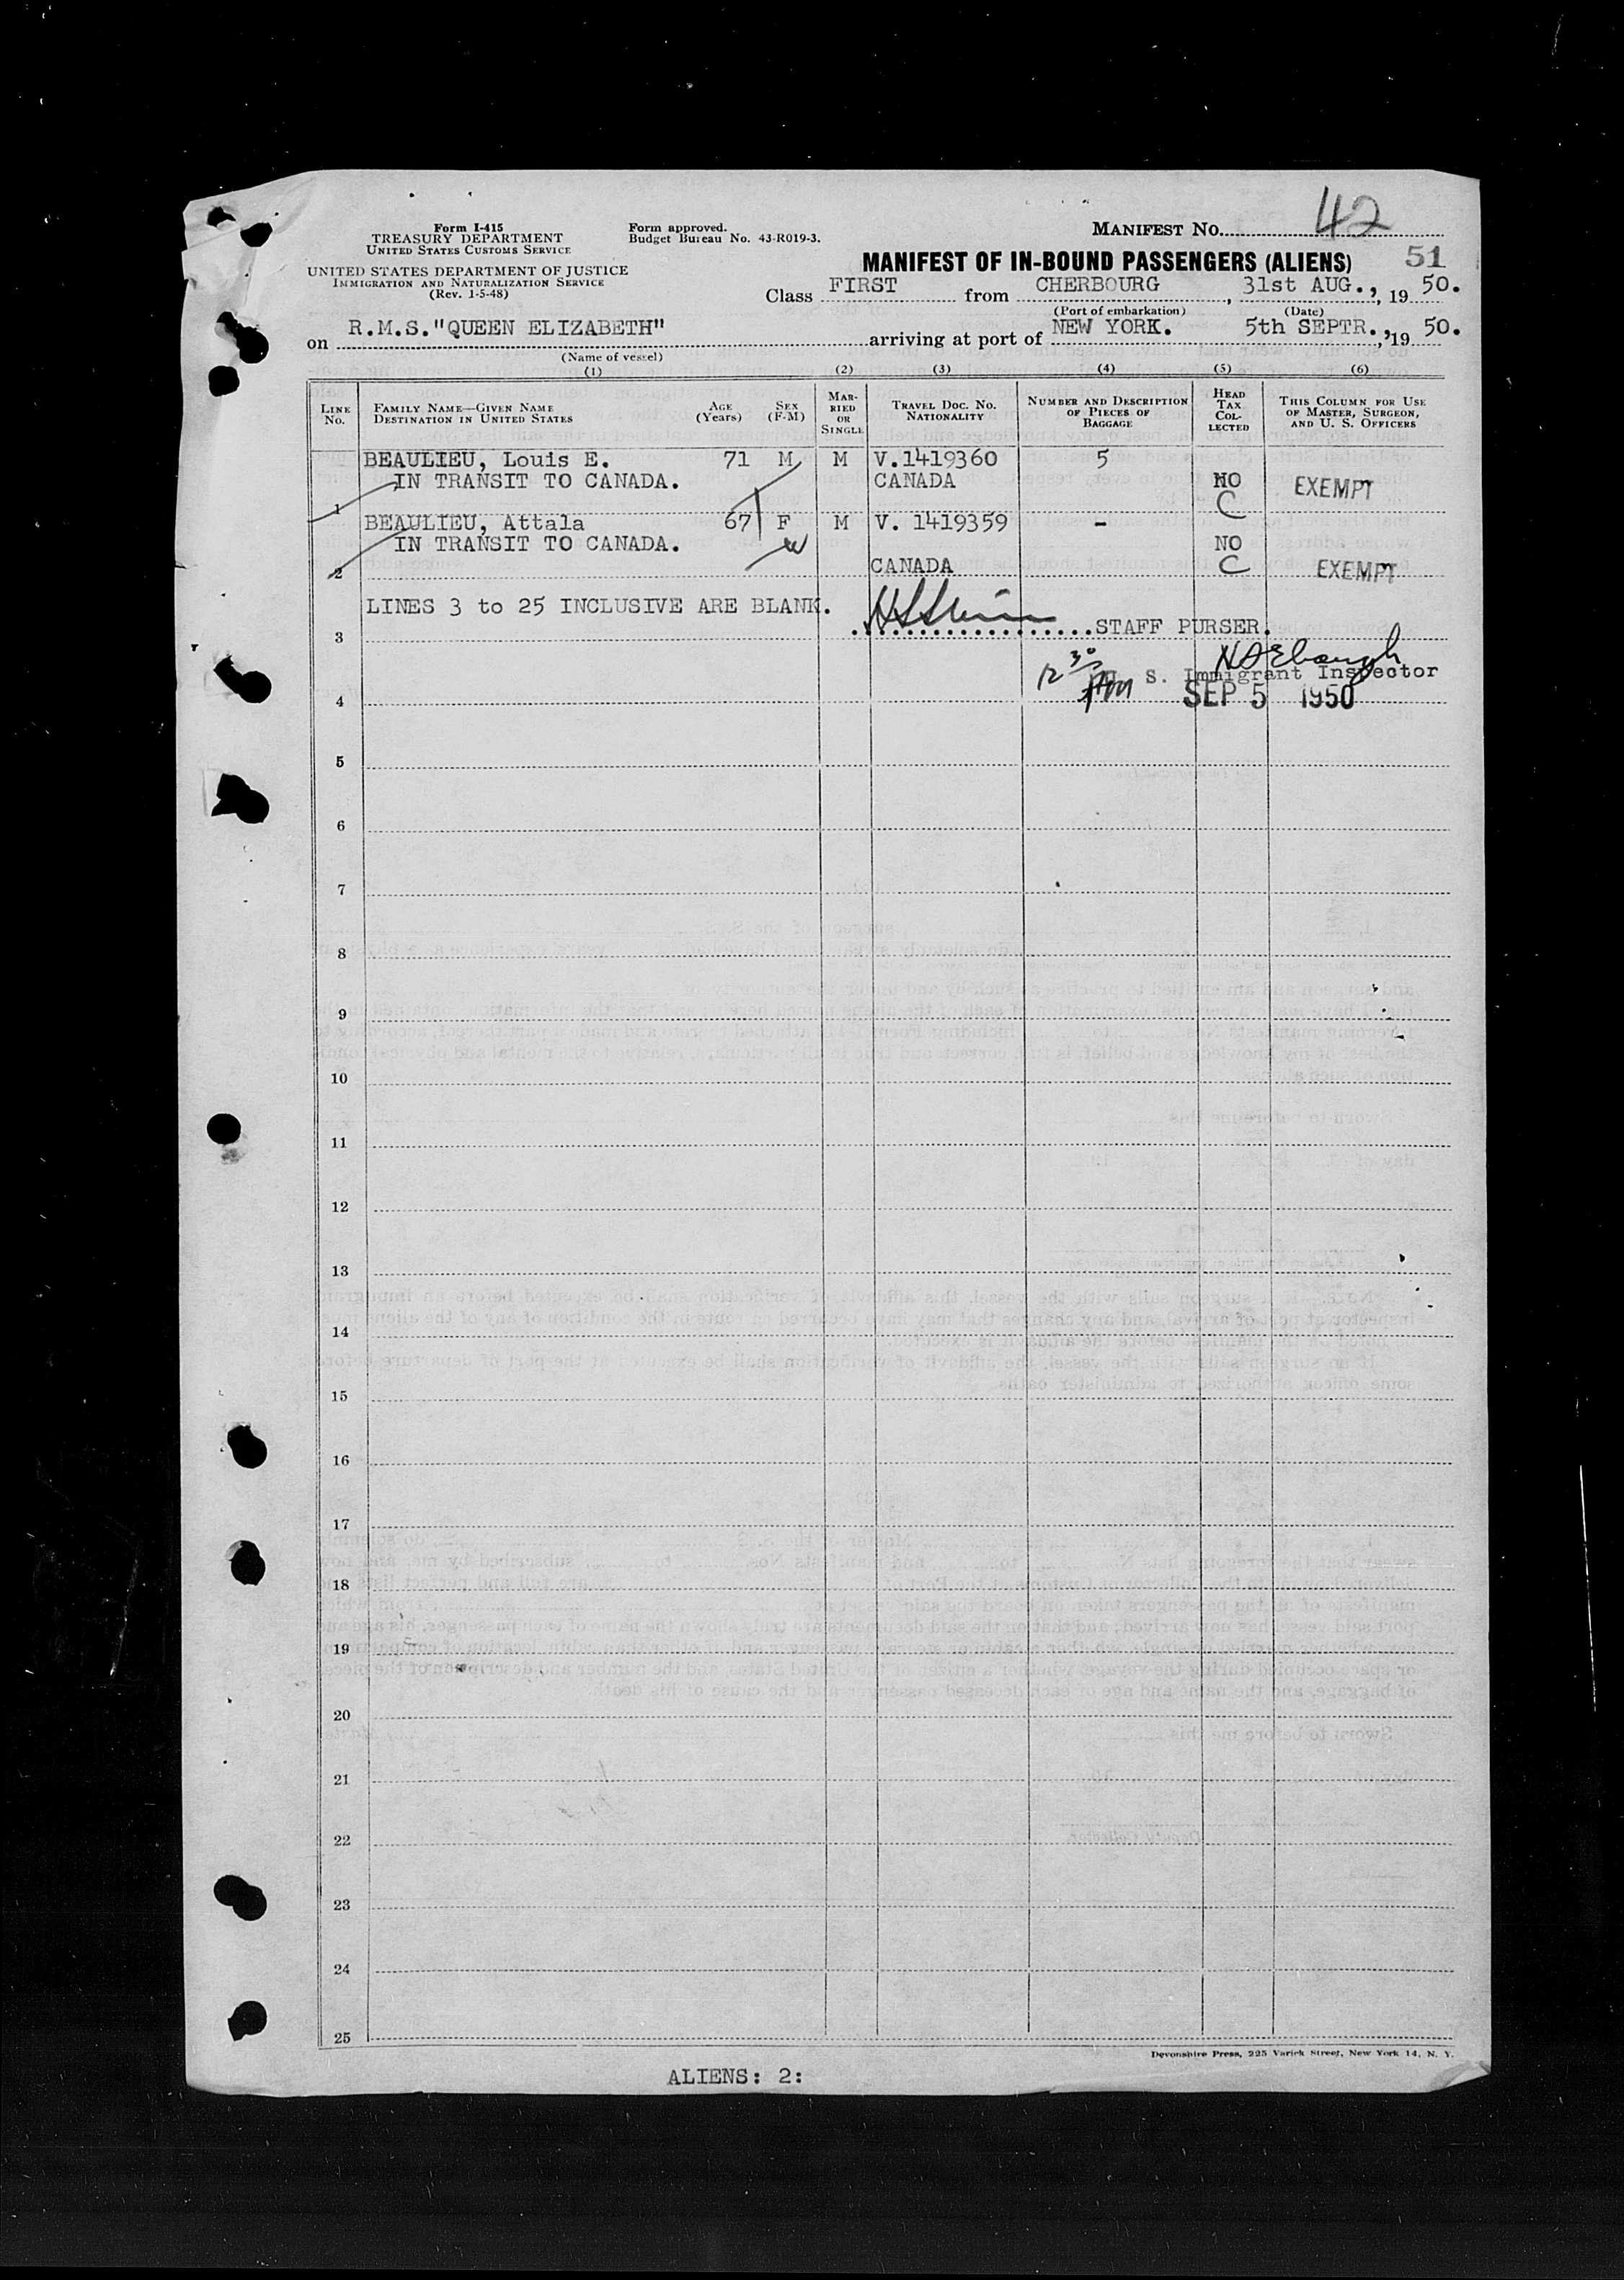 42
Form I-415
TREASURY DEPARTMENT
UNITED STATES CUSTOMS SERVICE
UNITED STATES DEPARTMENT OF JUSTICE
IMMIGRATION AND NATURALIZATION SERVICE
(Rev. 1-5-48)
Form approved.
Budget Bureau No. 43-R019-3.
MANIFEST No.
MANIFEST OF IN-BOUND PASSENGERS (ALIENS) 51
Class FIRST from CHERBOURG, 31st AUG., 19 50.
(Port of embarkation) (Date)
on R.M.S."QUEEN ELIZABETH" arriving at port of NEW YORK. 5th SEPTR., 19 50.
(Name of vessel)
(1) (2) (3) (4) (5) (6)
LINE No. FAMILY NAME—GIVEN NAME DESTINATION IN UNITED STATES AGE (Years) SEX (F-M) MARRIED OR SINGLE TRAVEL DOC. NO. NATIONALITY NUMBER AND DESCRIPTION OF PIECES OF BAGGAGE HEAD TAX COLLECTED THIS COLUMN FOR USE OF MASTER, SURGEON, AND U. S. OFFICERS
BEAULIEU, Louis E. 71 M M V.1419360 5
1 IN TRANSIT TO CANADA. CANADA NO C EXEMPT
BEAULIEU, Attala 67 F M V. 1419359 -
IN TRANSIT TO CANADA. NO
2 CANADA C EXEMPT
LINES 3 to 25 INCLUSIVE ARE BLANK.
3 STAFF PURSER.
12 30 PM S. Immigrant Inspector
4 SEP 5 1950
5
6
7
8
9
10
11
12
13
14
15
16
17
18
19
20
21
22
23
24
25
Devonshire Press, 225 Varick Street, New York 14, N. Y.
ALIENS: 2: